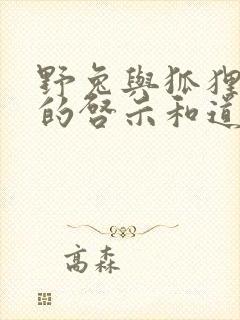 野兔與狐狸
的啓示和道
高森